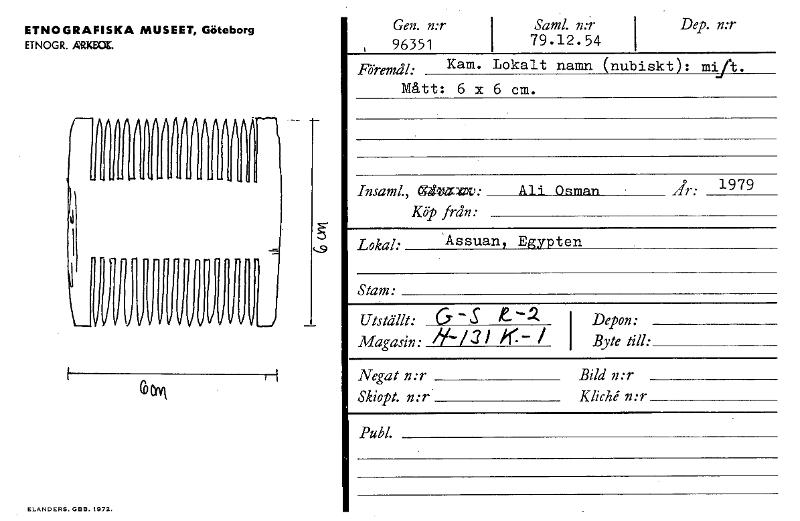 ETNOGRAFISKA MUSEET, Göteborg
ETNOGR. ARKEOL.
6 cm
6 cm
ELANDERS. GBG. 1972.
Gen. n:r Saml. n:r Dep. n:r
96351 79.12.54
Föremål: Kam. Lokalt namn (nubiskt): miſt.
Mått: 6 x 6 cm.
Insaml., : Ali Osman År: 1979
Köp från:
Lokal: Assuan, Egypten
Stam:
Utställt: G-S R-2 Depon:
Magasin: H-131 K.-1 Byte till:
Negat n:r Bild n:r
Skiopt. n:r Kliché n:r
Publ.